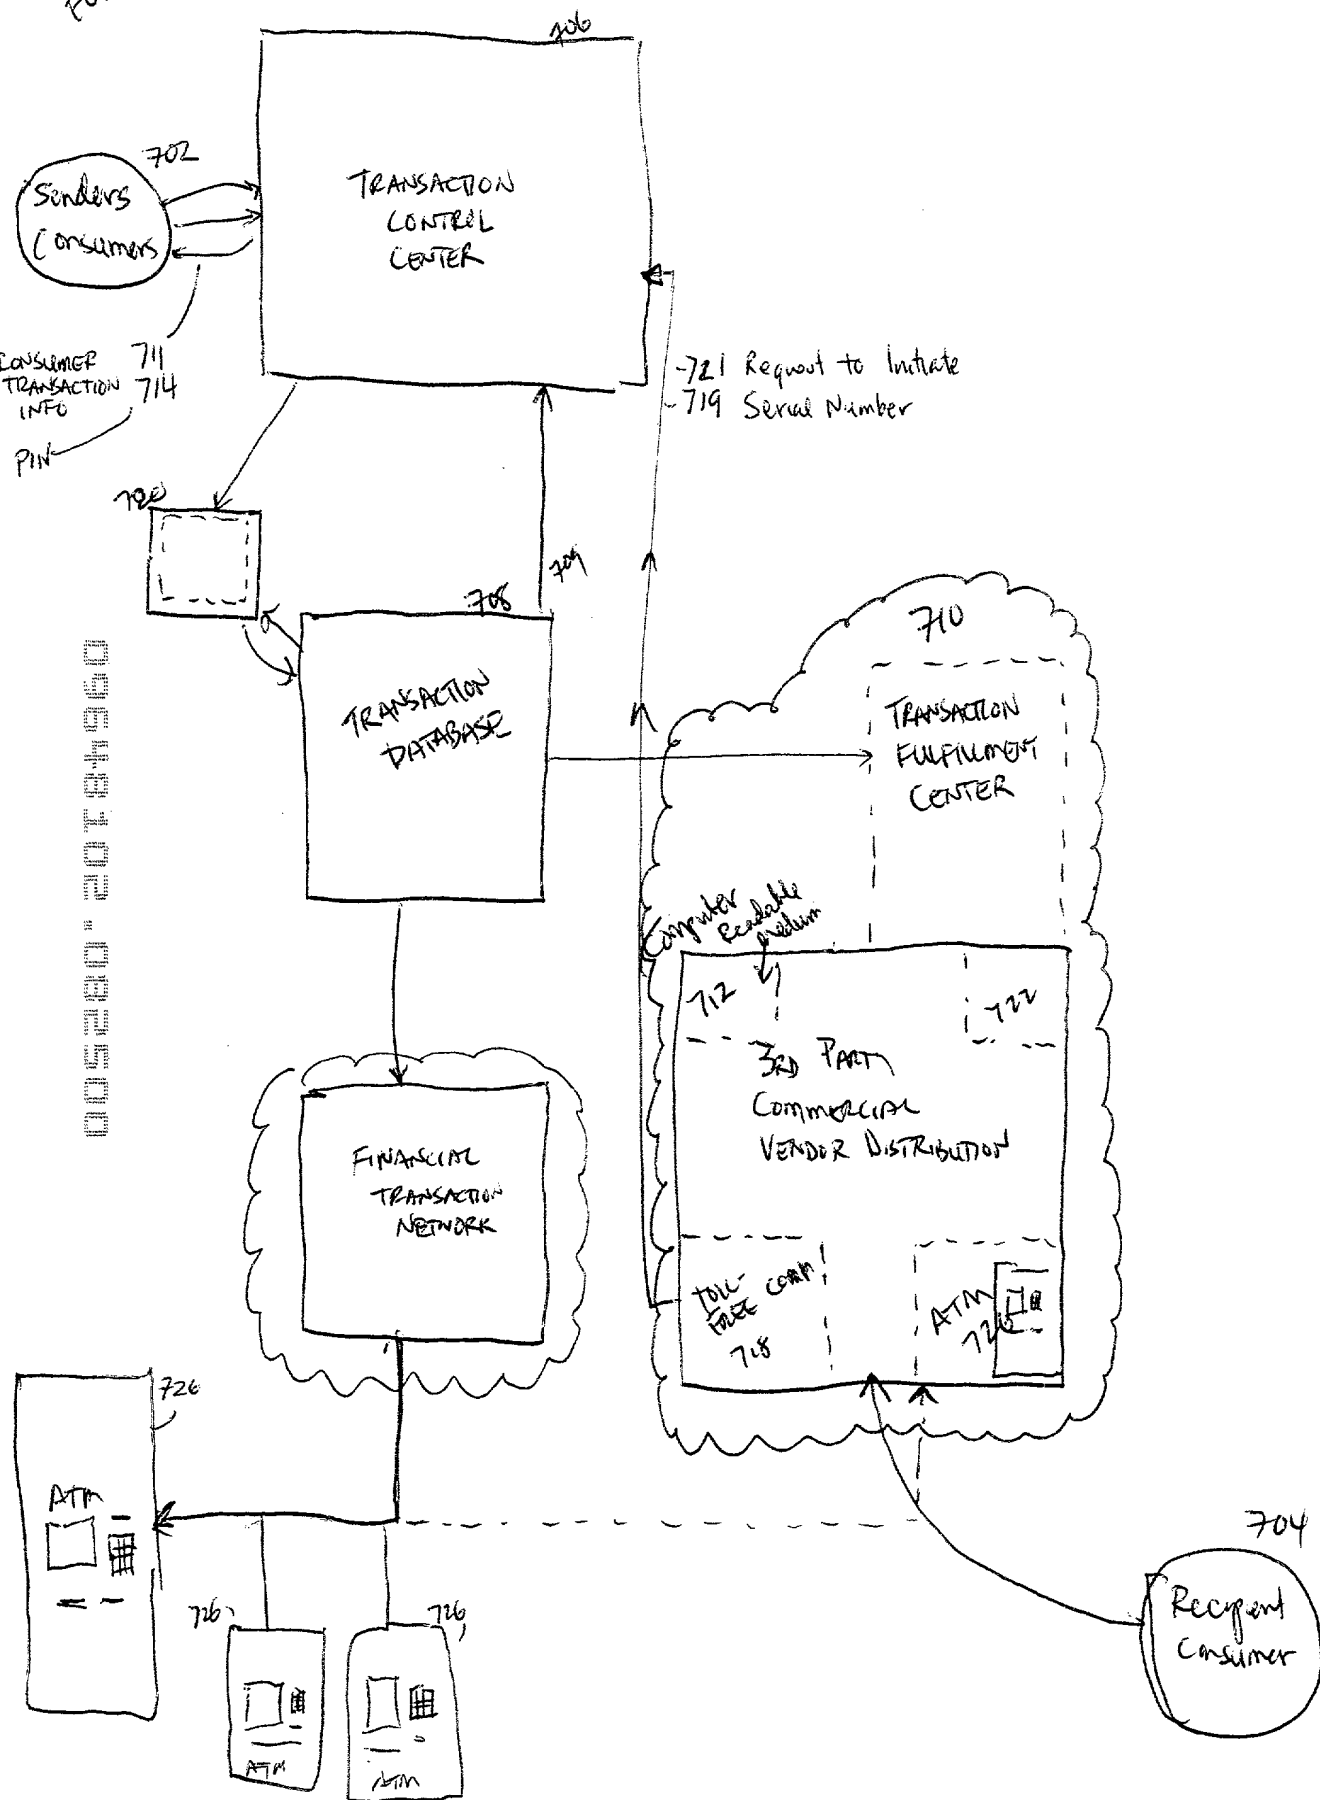 706
702
Senders
Consumers
TRANSACTION
CONTROL
CENTER
CONSUMER 711
TRANSACTION 714
INFO
PIN
721 Request to Initiate
719 Serial Number
720
709
708
TRANSACTION
DATABASE
710
TRANSACTION
FULFILLMENT
CENTER
Computer
Readable
medium
712
722
3RD PARTY
COMMERCIAL
VENDOR DISTRIBUTION
FINANCIAL
TRANSACTION
NETWORK
TOLL-
FREE COMM
718
ATM
726
726
ATM
704
Recipient
Consumer
726
726
ATM
ATM
09648102.082500